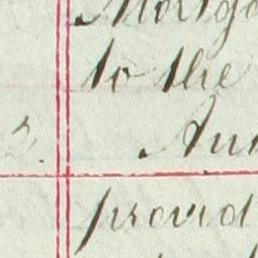 Mortga
to the
An
provid